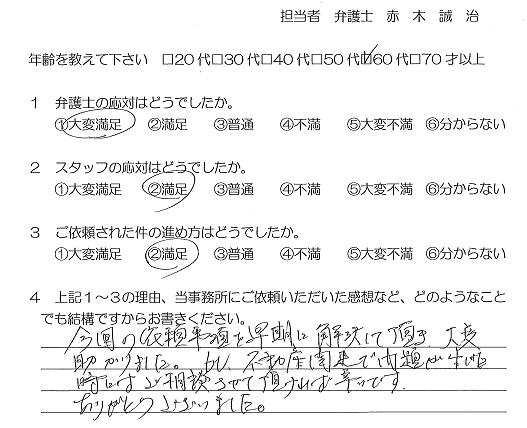 担当者 弁護士 赤木 誠治
年齢を教えて下さい □20代□30代□40代□50代☑60代□70才以上
1 弁護士の応対はどうでしたか。
①大変満足 ②満足 ③普通 ④不満 ⑤大変不満 ⑥分からない
2 スタッフの応対はどうでしたか。
①大変満足 ②満足 ③普通 ④不満 ⑤大変不満 ⑥分からない
3 ご依頼された件の進め方はどうでしたか。
①大変満足 ②満足 ③普通 ④不満 ⑤大変不満 ⑥分からない
4 上記1～3の理由、当事務所にご依頼いただいた感想など、どのようなこと
でも結構ですからお書きください。
今回の依頼事項を早期に解決して頂き 大変
助かりました。もし、不動産関連で問題が生じた
時にはご相談させて頂ければ幸いです。
ありがとうございました。